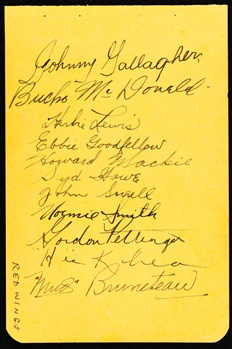 Johnny Gallagher
Bucko McDonald
Herbie Lewis
Ebbie Goodfellow
Howard Mackie
Syd Howe
John Sorrell
Normie Smith
Gordon Pettinger
Hec Kilrea
"Mud" Bruneteau
RED WINGS